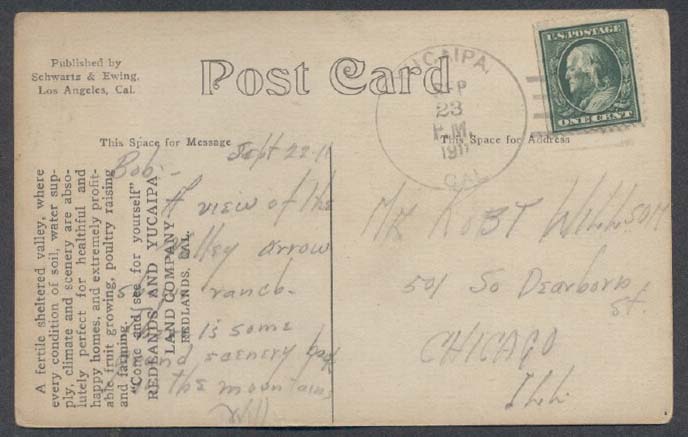 Published by
Schwartz & Ewing.
Los Angeles, Cal.
Post Card
YUCAIPA.
SEP
23
P.M.
1911
CAL.
U.S. POSTAGE
ONE CENT
This Space for Message
This Space for Address
A fertile sheltered valley, where
every condition of soil, water sup-
ply, climate and scenery are abso-
lutely perfect for healthful and
happy homes, and extremely profit-
able fruit growing, poultry raising
and farming.
"Come and see for yourself"
REDLANDS AND YUCAIPA
LAND COMPANY
REDLANDS, CAL.
Sept 22-11
Bob:-
A view of the
valley arrow
ranch-
Is some
scenery
the mountains
Will
Mr Robt Willson
501 So Dearborn
St.
CHICAGO
Ill